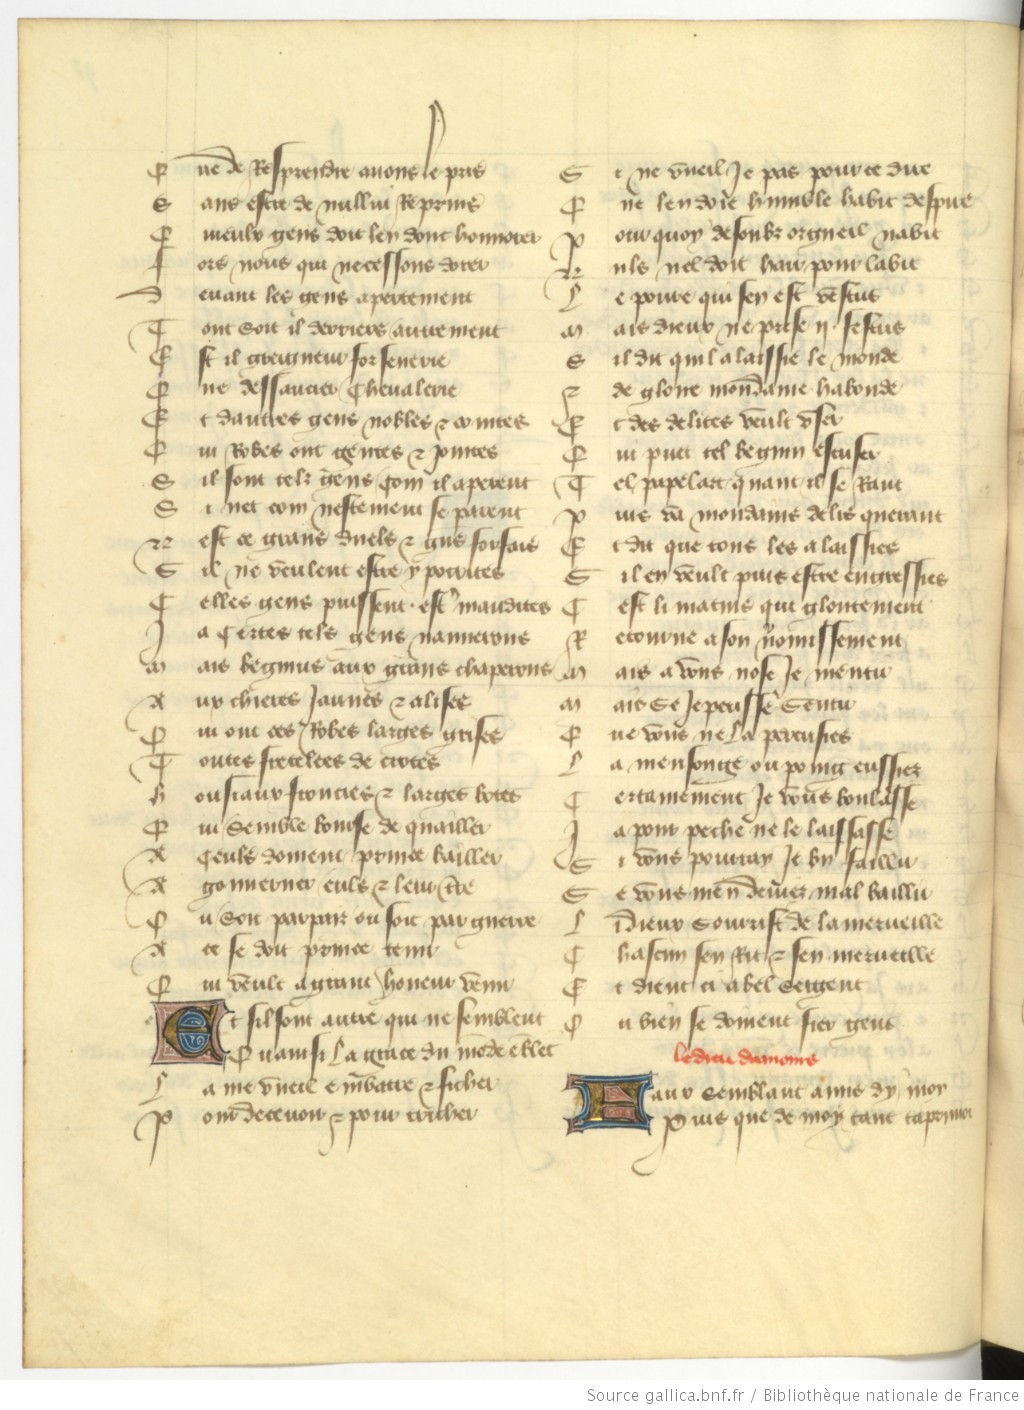 Que de Resprendre auons le pris
Sans estre de nulluy Reprins
Quieulx gens doit len dont honnorer
Fors nous qui ne cessons dorer
Deuant les gens apertement
Tont soit il derriere autrement
Est il greigneur forsenerie
Que dessaucier Cheualerie
Et dautres gens nobles 7 cointes
Qui Robes ont gentes 7 Jointes
Sil sont telz gens Com il aperent
Si net com nestement se parent
Nest ce grans duels 7 gns forfais
Sil ne veulent estre ypocrites
Celles gens puissent estre maudites
Ja Certes tels gens namerons
Mais beginus aux grans chaperons
Aux chieres Jaunes 7 alises
Qui ont ces Robes larges grises
Toutes fretelees de crotes
Housiaux fronciés 7 larges botes
Qui semble bourse de quaillier
A Ceuls doiuent prince baillier
A gouuerner euls 7 leur tre
Ou soit par paix ou soit par guerre
A ce se doit prince tenir
Qui veult a grant honeur venir
Et sil sont autre qui ne semblent
Quainsi la grace du mode emblet
La me vueil embatre 7 ficher
Pour deceuoir 7 pour tricher
Si ne vueil Je pas pour ce dire
Que len doie humble habit despire
Pour quoy desoubz orgueil nabit
Nuls nel doit hair pour labit
Le poure qui sen est vestus
Mais dieux ne prise ij festus
Sil dit quil a laissie le monde
7 de gloire mondaine habonde
Et des delites veult vser
Qui puet tel beguin escuser
Tel papelart quant il se Rant
Puis va mondains delis querant
Et dit que tous les a laissies
Sil en veult puis estre engressies
Cest li matins qui gloutement
Retourne a son vomissement
Mais a vous nose Je mentir
Mais se Je peusse sentir
Que vous ne la perceusies
La mensonge ou poing eussiez
Certainement Je vous boulasse
Ja pour peche ne le laissasse
Si vous pourray Je by faillir
Se vous men deuiez mal baillir
Li dieux sourist de la merueille
Chascun sen Rit 7 sen merueille
Et dient ci a bel sergent
Ou bien se doiuent fier gens
le dieu damours
Faux semblant dist amours dy moy
Puis que de moy tant taprimoi